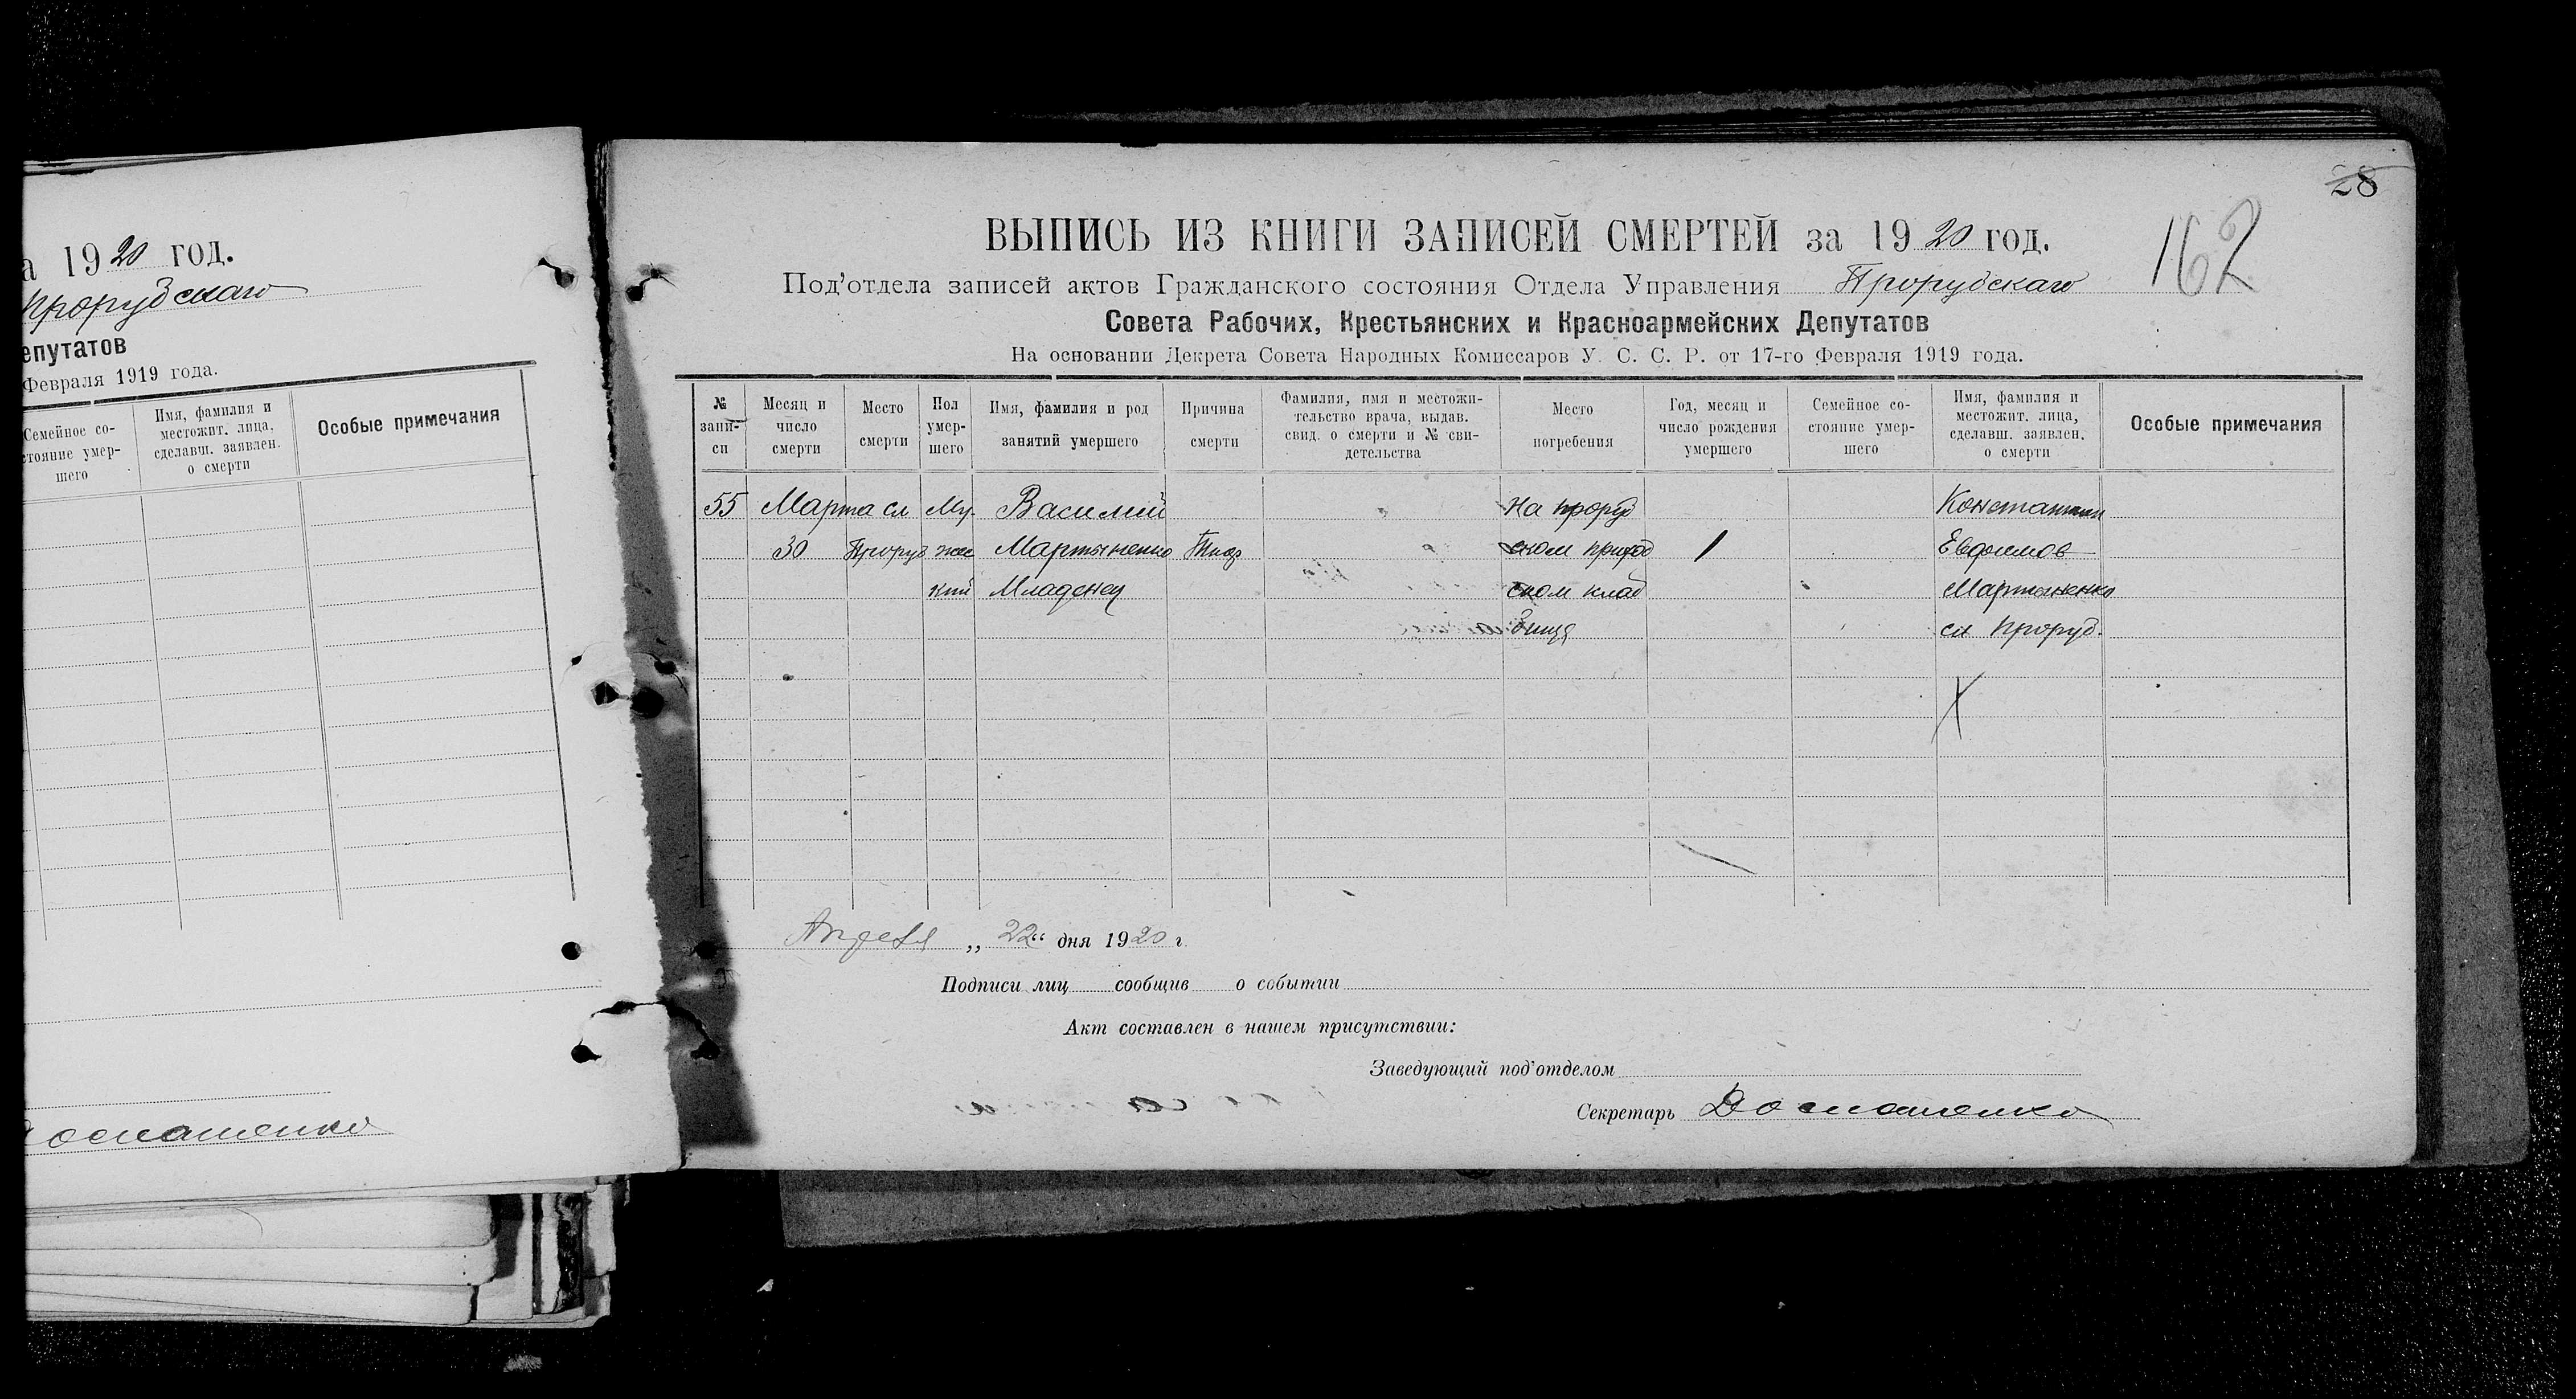 а 1920 год.
Прорубскаго
епутатов
Февраля 1919 года.
Семейное со-
стояние умер-
шего
Имя, фамилия и
местожит. лица,
сделавш. заявлен.
о смерти
Особые примечания
28
162
ВЫПИСЬ ИЗ КНИГИ ЗАПИСЕЙ СМЕРТЕЙ за 1920 год.
Под'отдела записей актов Гражданского состояния Отдела Управления Прорубскаго
Совета Рабочих, Крестьянских и Красноармейских Депутатов
На основании Декрета Совета Народных Комиссаров У. С. С. Р. от 17-го Февраля 1919 года.
№
запи-
си
Месяц и
число
смерти
Место
смерти
Пол
умер-
шего
Имя, фамилия и род
занятий умершего
Причина
смерти
Фамилия, имя и местожи-
тельство врача, выдав.
свид. о смерти и № сви-
детельства
Место
погребения
Год, месяц и
число рождения
умершего
Семейное со-
стояние умер-
шего
Имя, фамилия и
местожит. лица,
сделавш. заявлен.
о смерти
Особые примечания
55 Марта сл Му- Василий На проруб Константин
30 Проруб жс Мартыненко Тиф ском приход 1 Евфимов
кий Младенец ском клад Мартыненко
бище сл Проруб.
Апреля „ 22 “ дня 1920 г.
Подписи лиц сообщив о событии
Акт составлен в нашем присутствии:
Заведующий под'отделом
Секретарь